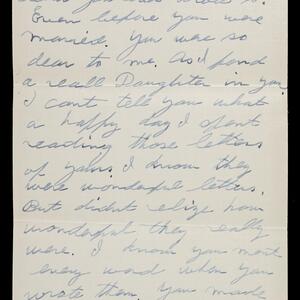 Even before you were
married. You were so
dear to me. As I found
a reall Daughter in you.
I cant tell you what
a happy day I spent
reading those letters
of yours. I know they
were wonderful letters.
But didnt relize how
wonderful they really
were. I know you ment
every word when you
wrote them. You made